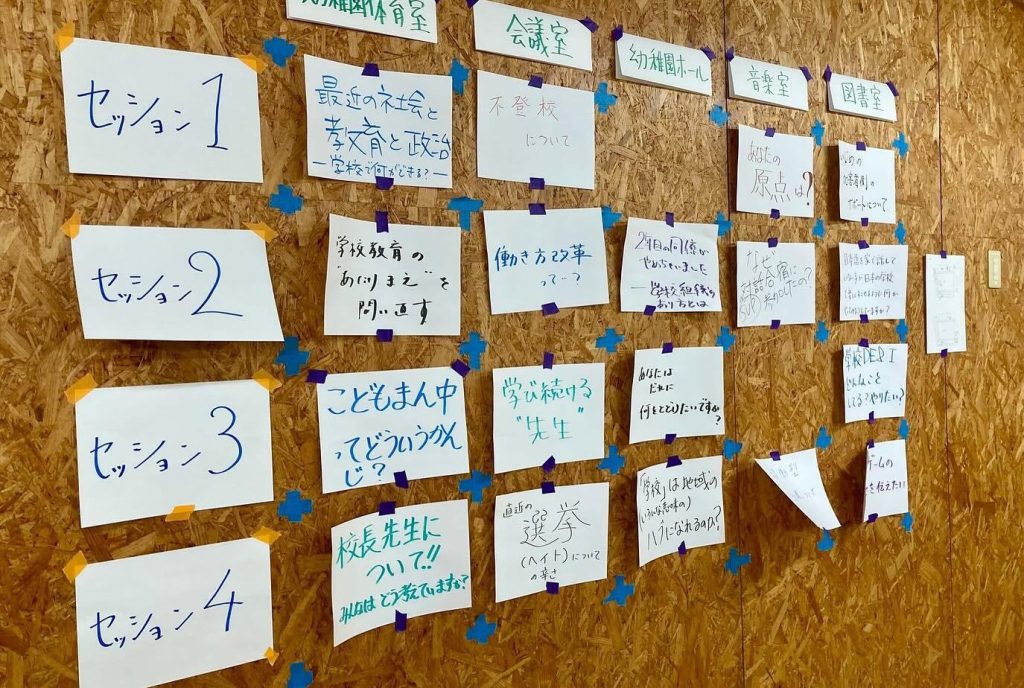 幼稚園体育室
会議室
幼稚園ホール
音楽室
図書室
セッション1
最近の社会と
教育と政治
―学校で何ができる?―
不登校
について
あなたの
原点は?
セッション2
学校教育の
"あたりまえ"を
問い直す
働き方改革
って…?
2年目の同僚が
やめちゃいました
―学校組織の
あり方とは
なぜ
対話合宿に
参加したの?
セッション3
こどもまん中
ってどういうかん
じ?
学び続ける
"先生"
あなたは
だれに
何をとどけたいですか
?
学校DE&I
どんなこと
してる?やりたい?
セッション4
校長先生に
ついて!!
みんなはどう考えていますか?
直近の
選挙
(ヘイト)について
の辛さ
「学校」は地域の
(いろんな意味の)
ハブになれるのか?
ゲームの
を伝えたい